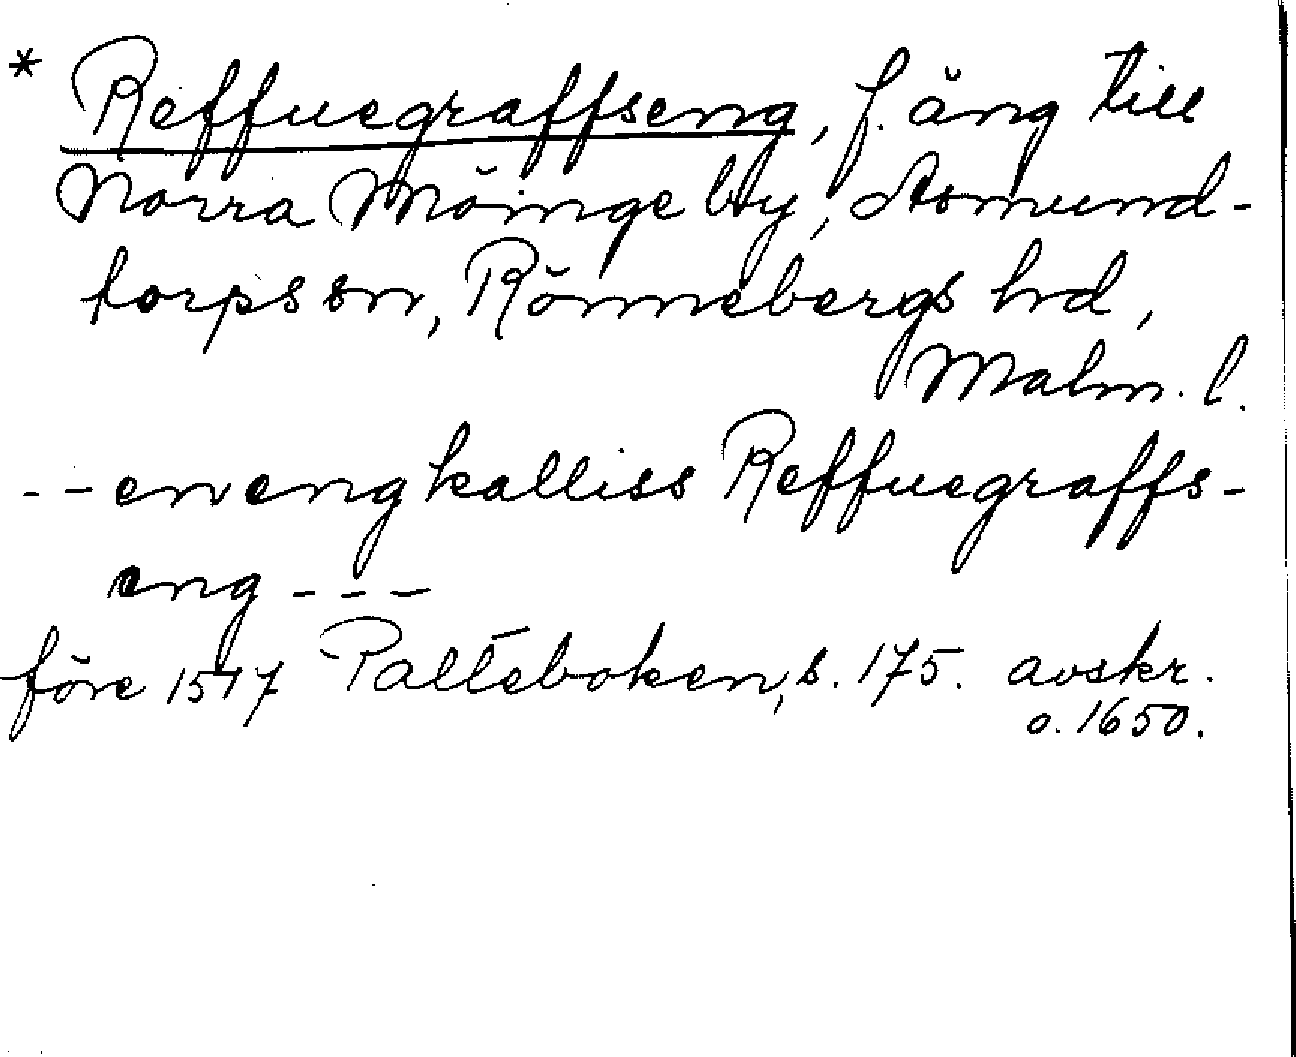 * Reffuegraffseng, f. äng till
Norra Möinge by, Asmund-
torps sn, Rönnebergs hd,
Malm. l.
-- en eng kalliss Reffuegraffs-
eng ---
före 1547 Palteboken, s. 175. avskr.
o. 1650.